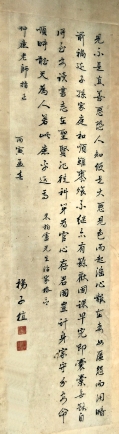 見不是真善惡恐人知便是大惡見色而起淫心報在妻女匿怨而用暗
箭禍延子孫家庭和順雖饔飧不繼亦有餘歡國課早完即囊橐無餘自
得至樂讀書志在聖賢非徒科第為官心存君國豈計身家守分安命
順時聽天為人若此庶乎近焉 朱柏廬先生治家格言
老師指正 丙寅孟春 楊子